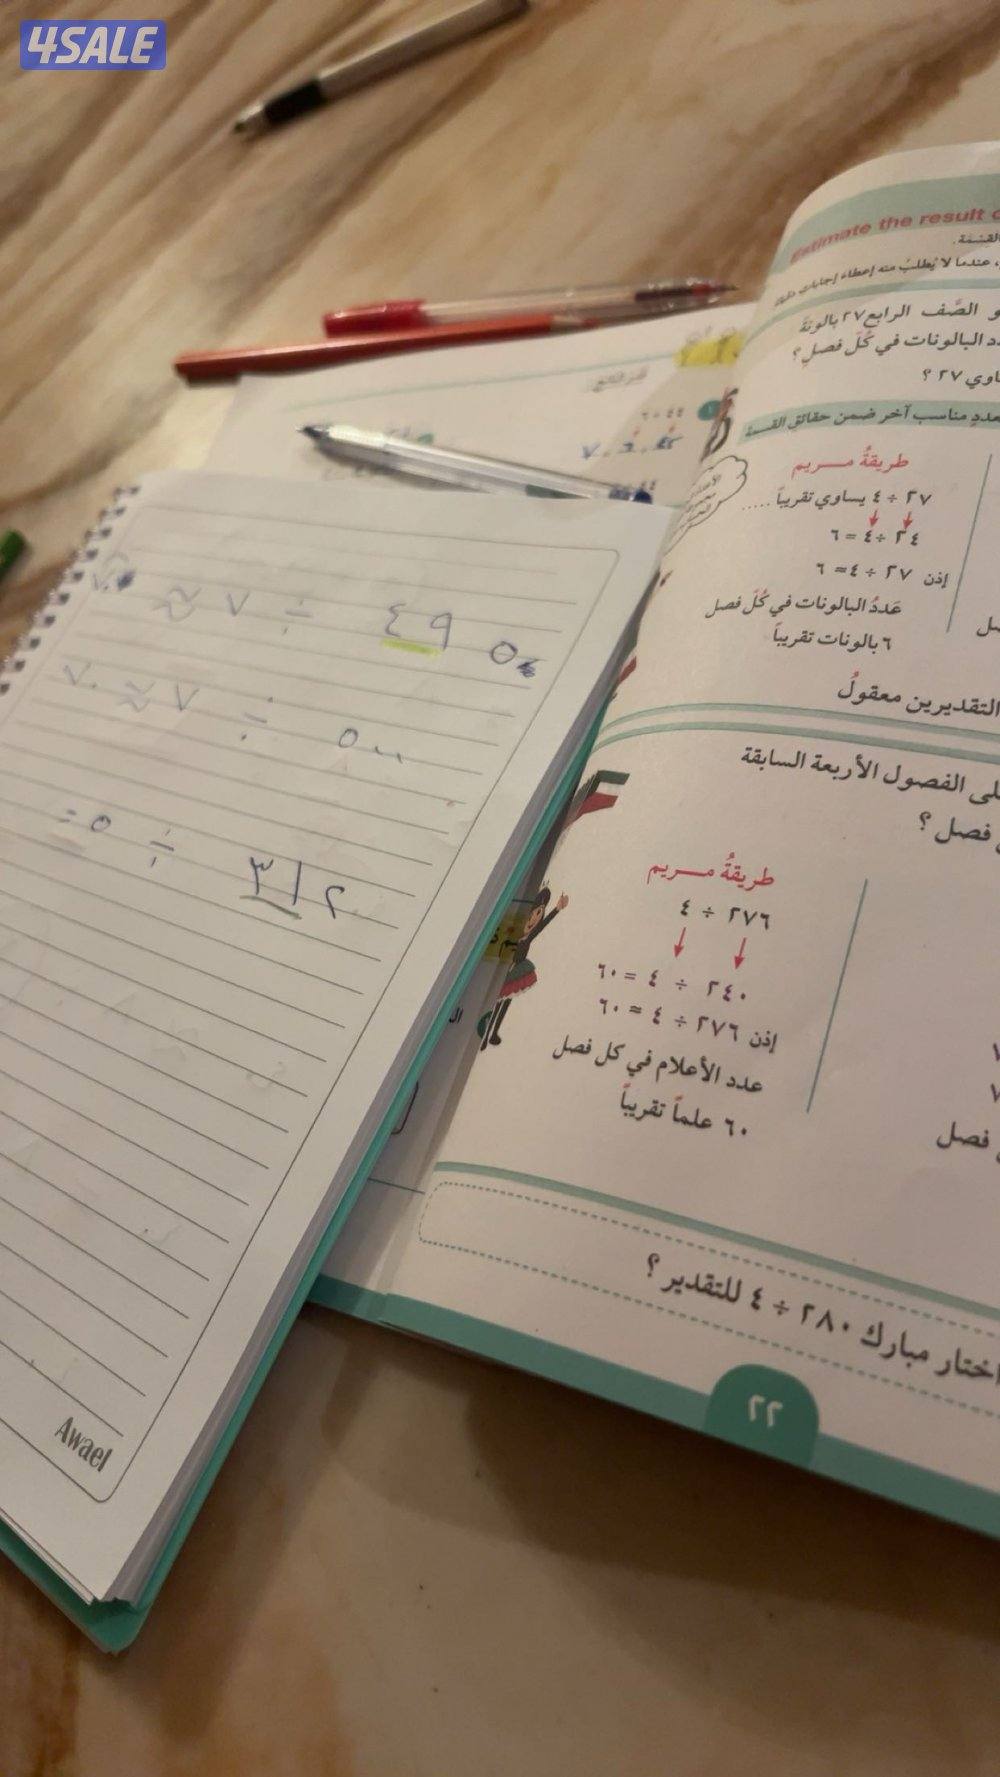 4SALE
Estimate the result
القسمة.
، عندما لا يُطلب منه إعطاء إجابات دقيقة
الصَّف الرابع ٢٧ بالونة
البالونات في كُلّ فصل؟
٢٧ ؟
مناسب آخر ضمن حقائق القسمة
طريقةُ مــريم
٢٧ ÷ ٤ يساوي تقريباً .....
٢٤ ÷ ٤ = ٦
إذن ٢٧ ÷ ٤ ≈ ٦
عَددُ البالونات في كُلّ فصل
٦ بالونات تقريباً
التقديرين معقولُ
الفصول الأربعة السابقة
فصل ؟
طريقةُ مــريم
٢٧٦ ÷ ٤
٢٤٠ ÷ ٤ = ٦٠
إذن ٢٧٦ ÷ ٤ ≈ ٦٠
عدد الأعلام في كل فصل
٦٠ علماً تقريباً
فصل
اختار مبارك ٢٨٠ ÷ ٤ للتقدير ؟
٢٢
٣١٢ ÷ ٥ =
Awael